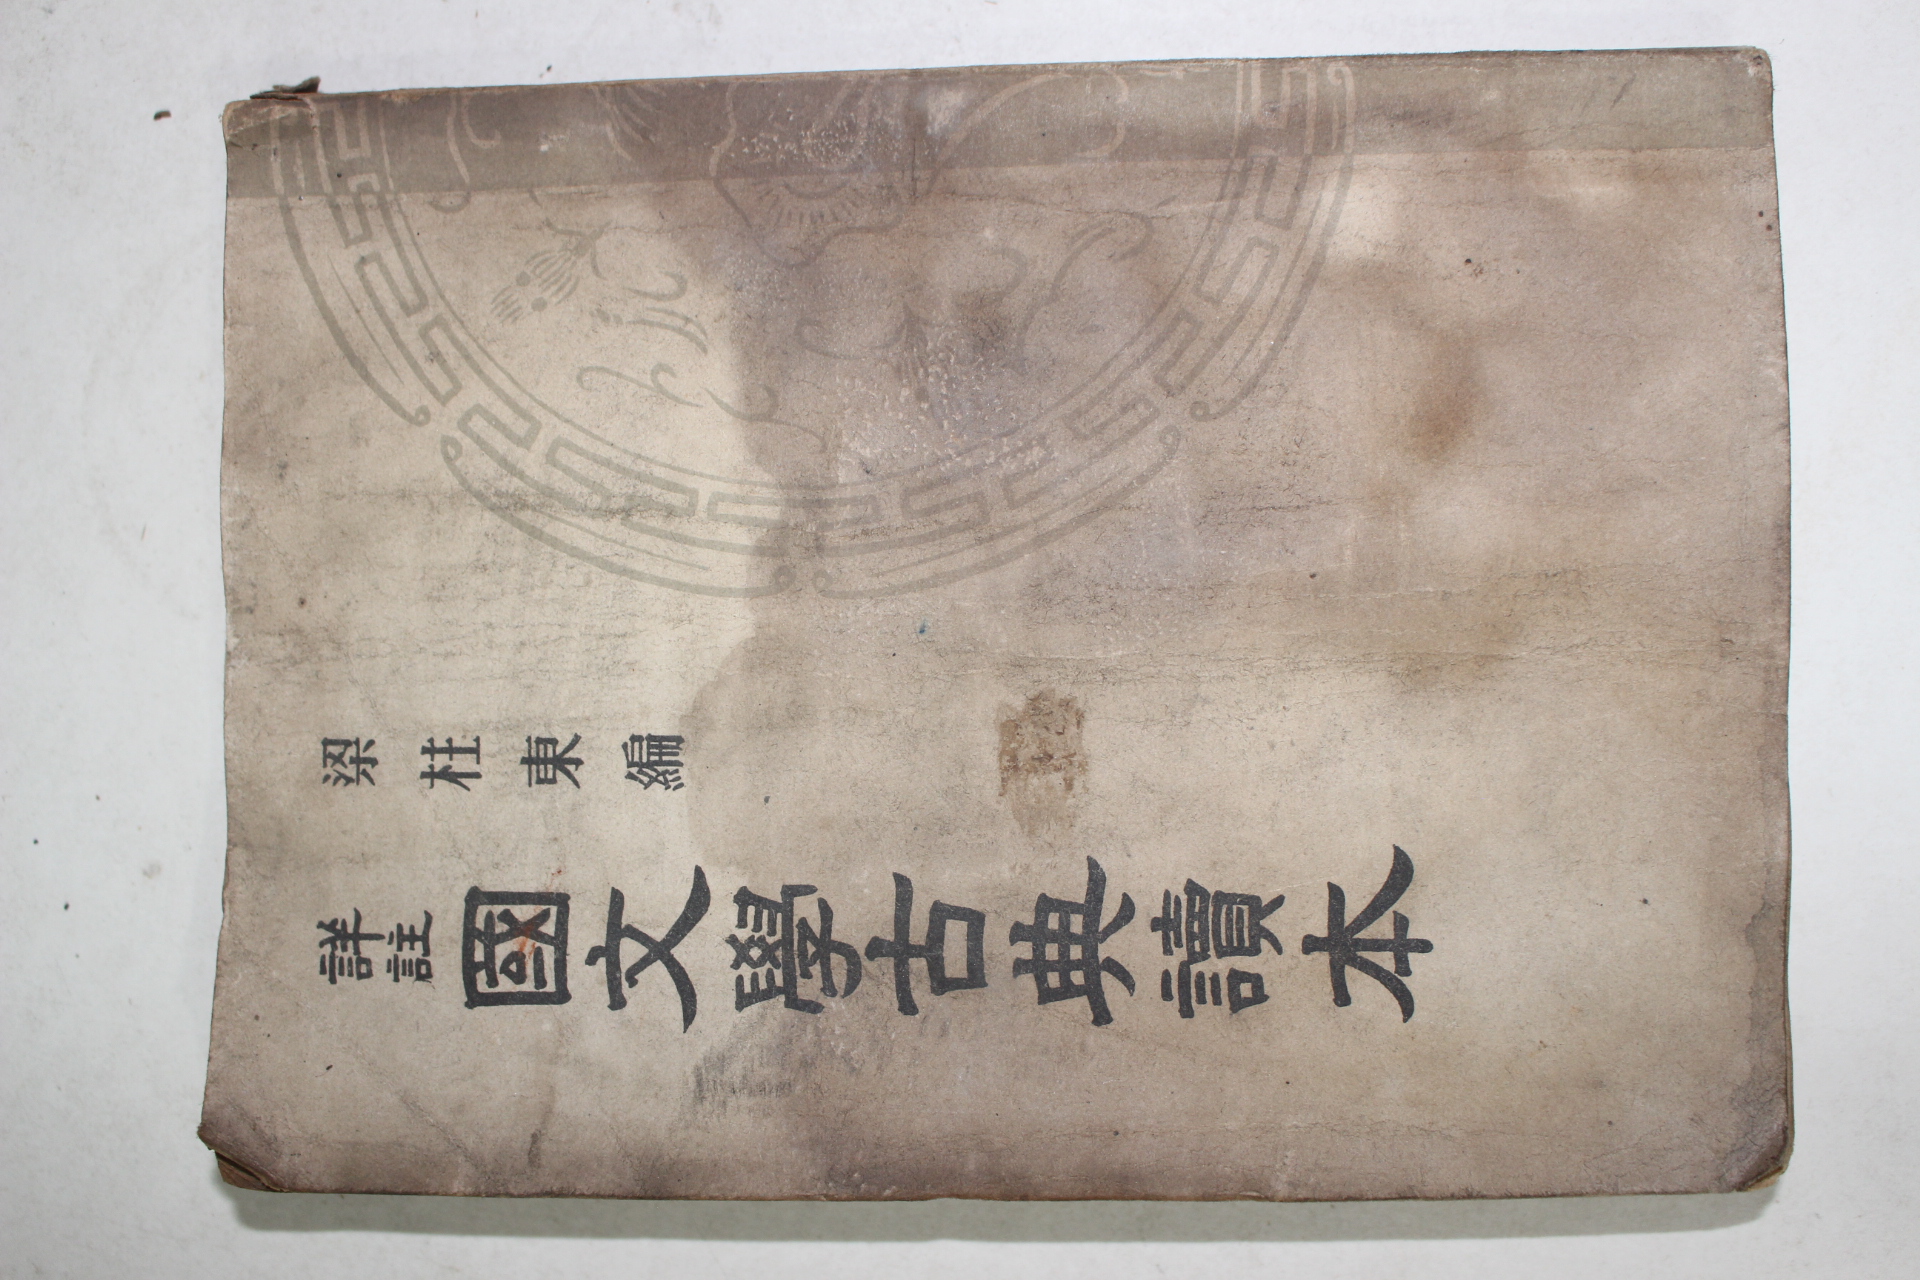 詳註
國文學古典讀本
梁柱東編